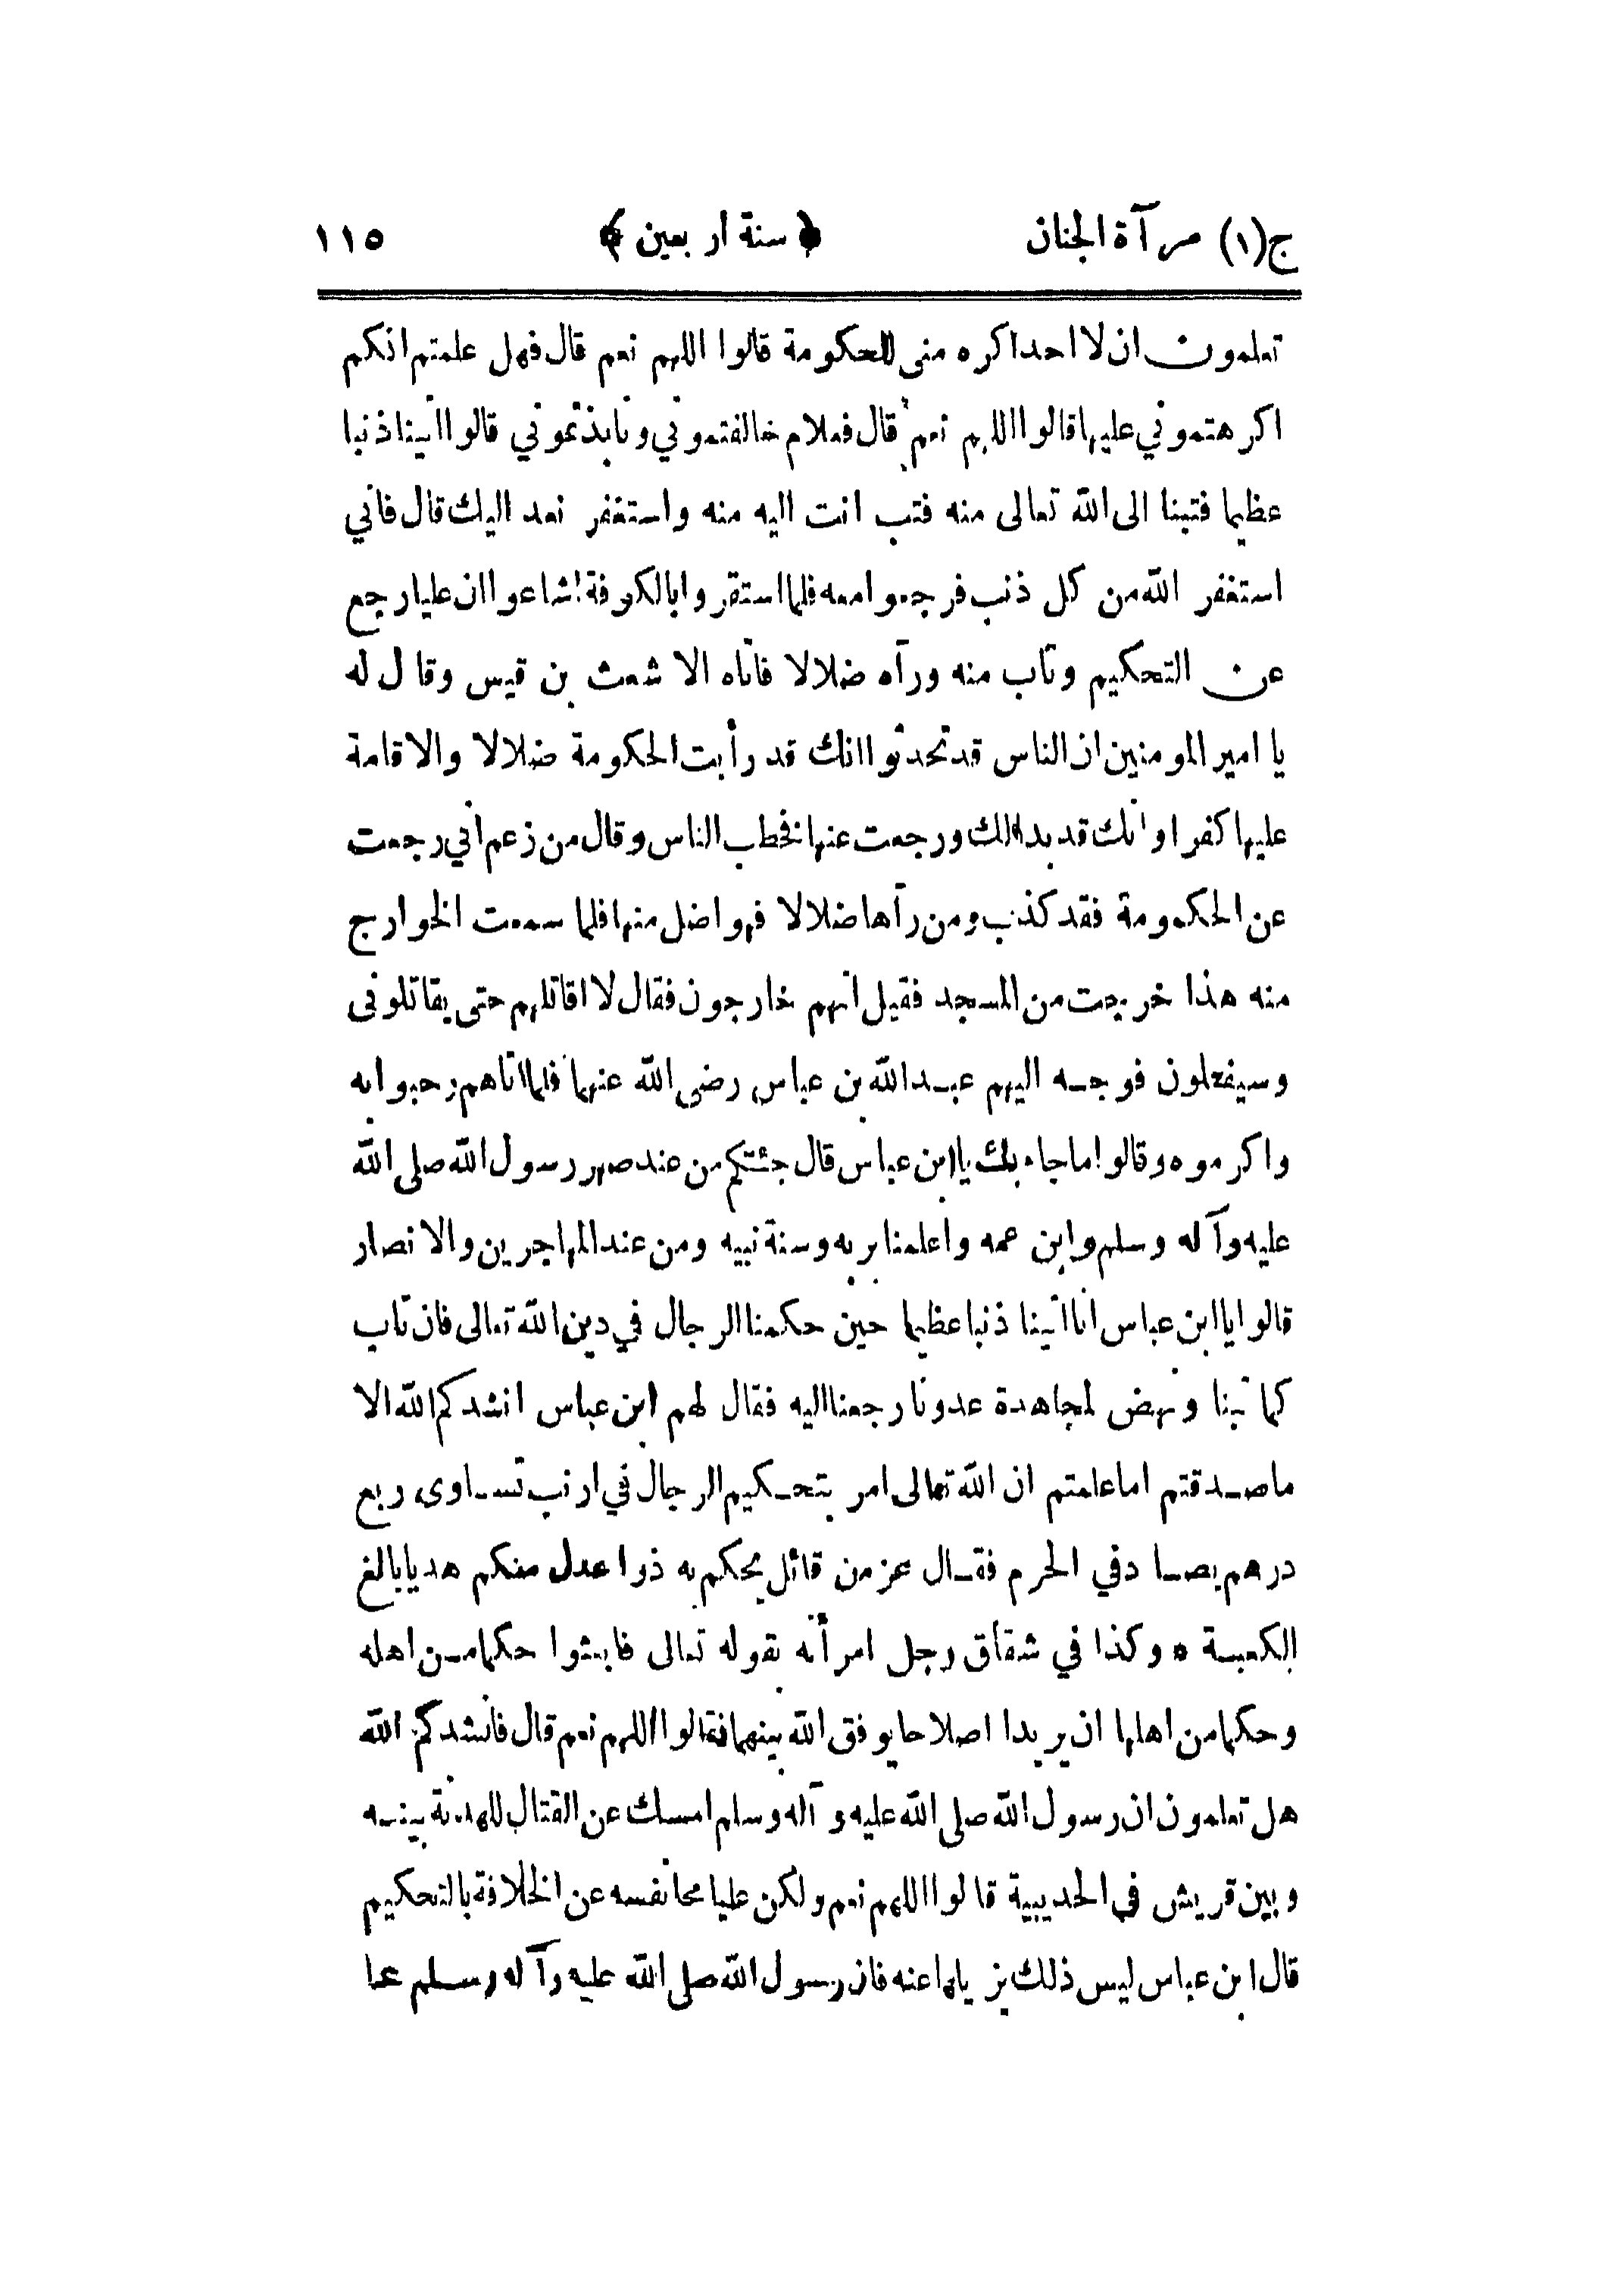 ج(١) مرآة الجنان ﴿ سنة اربعين ﴾ ١١٥
تعلمون ان لا احدا كره مني للحكومة قالوا اللهم نعم قال فهل علمتم انكم
اكرهتموني عليها قالوا اللهم نعم قال فعلام خالفتموني ونابذتموني قالوا اتينا ذنبا
عظيما فتبنا الى الله تعالى منه فتب انت اليه منه واستغفر نعد اليك قال فاني
استغفر الله من كل ذنب فرجعوا معه فلما استقروا بالكوفة اشاعوا ان عليا رجع
عن التحكيم وتاب منه ورآه ضلالا فاتاه الاشعث بن قيس وقال له
يا امير المومنين ان الناس قد تحدثوا انك قد رأيت الحكومة ضلالا والاقامة
عليها كفرا وانك قد بدالك ورجعت عنها فخطب الناس وقال من زعم اني رجعت
عن الحكومة فقد كذب ومن رآها ضلالا فهو اضل منها فلما سمعت الخوارج
منه هذا خرجت من المسجد فقيل انهم خارجون فقال لا اقاتلهم حتى يقاتلونى
وسيفعلون فوجه اليهم عبد الله بن عباس رضى الله عنهما فلما اتاهم رحبوا به
واكرموه وقالوا ما جاء بك يا ابن عباس قال جئتكم من عند صهر رسول الله صلى الله
عليه وآله وسلم وابن عمه واعلمنا بربه وسنة نبيه ومن عند المهاجرين والانصار
قالوا يا ابن عباس انا اتينا ذنبا عظيما حين حكمنا الرجال في دين الله تعالى فان تاب
كما تبنا ونهض لمجاهدة عدونا رجعنا اليه فقال لهم ابن عباس انشدكم الله الا
ما صدقتم اما علمتم ان الله تعالى امر بتحكيم الرجال في ارنب تساوى ربع
درهم يصاد في الحرم فقال عز من قائل يحكم به ذوا عدل منكم هديا بالغ
الكعبة ٥ وكذا في شقاق رجل امرأته بقوله تعالى فابعثوا حكما من اهله
وحكما من اهلها ان يريدا اصلاحا يوفق الله بينهما فقالوا اللهم نعم قال فانشدكم الله
هل تعلمون ان رسول الله صلى الله عليه وآله وسلم امسك عن القتال للهدنة بينه
وبين قريش في الحديبية قالوا اللهم نعم ولكن عليا محا نفسه عن الخلافة بالتحكيم
قال ابن عباس ليس ذلك يزيلها عنه فان رسول الله صلى الله عليه وآله وسلم محا